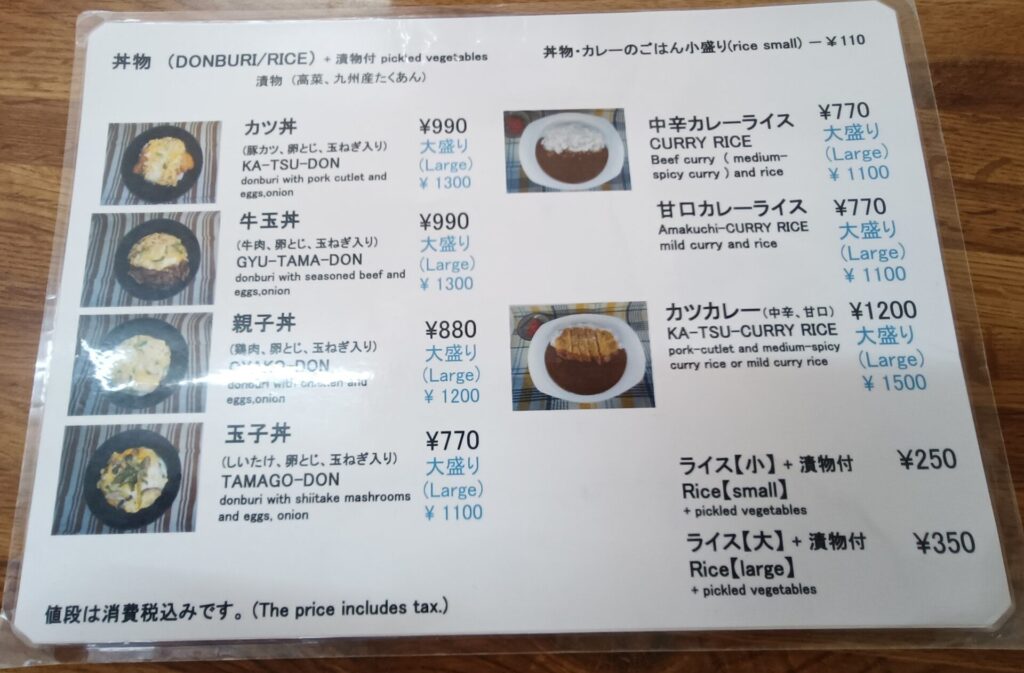 丼物 (DONBURI/RICE) + 漬物付 pickled vegetables
漬物 (高菜、九州産たくあん)
丼物・カレーのごはん小盛り(rice small) ー¥110
カツ丼 ¥990
(豚カツ、卵とじ、玉ねぎ入り) 大盛り
KA-TSU-DON (Large)
donburi with pork cutlet and ¥ 1300
eggs,onion
牛玉丼 ¥990
(牛肉、卵とじ、玉ねぎ入り) 大盛り
GYU-TAMA-DON (Large)
donburi with seasoned beef and ¥ 1300
eggs,onion
親子丼 ¥880
(鶏肉、卵とじ、玉ねぎ入り) 大盛り
OYAKO-DON (Large)
donburi with chicken and ¥ 1200
eggs,onion
玉子丼 ¥770
(しいたけ、卵とじ、玉ねぎ入り) 大盛り
TAMAGO-DON (Large)
donburi with shiitake mashrooms ¥ 1100
and eggs, onion
中辛カレーライス ¥770
CURRY RICE 大盛り
Beef curry ( medium- (Large)
spicy curry ) and rice ¥ 1100
甘口カレーライス ¥770
Amakuchi-CURRY RICE 大盛り
mild curry and rice (Large)
¥ 1100
カツカレー(中辛、甘口) ¥1200
KA-TSU-CURRY RICE 大盛り
pork-cutlet and medium-spicy (Large)
curry rice or mild curry rice ¥ 1500
ライス【小】+ 漬物付 ¥250
Rice【small】
+ pickled vegetables
ライス【大】+ 漬物付 ¥350
Rice【large】
+ pickled vegetables
値段は消費税込みです。(The price includes tax.)